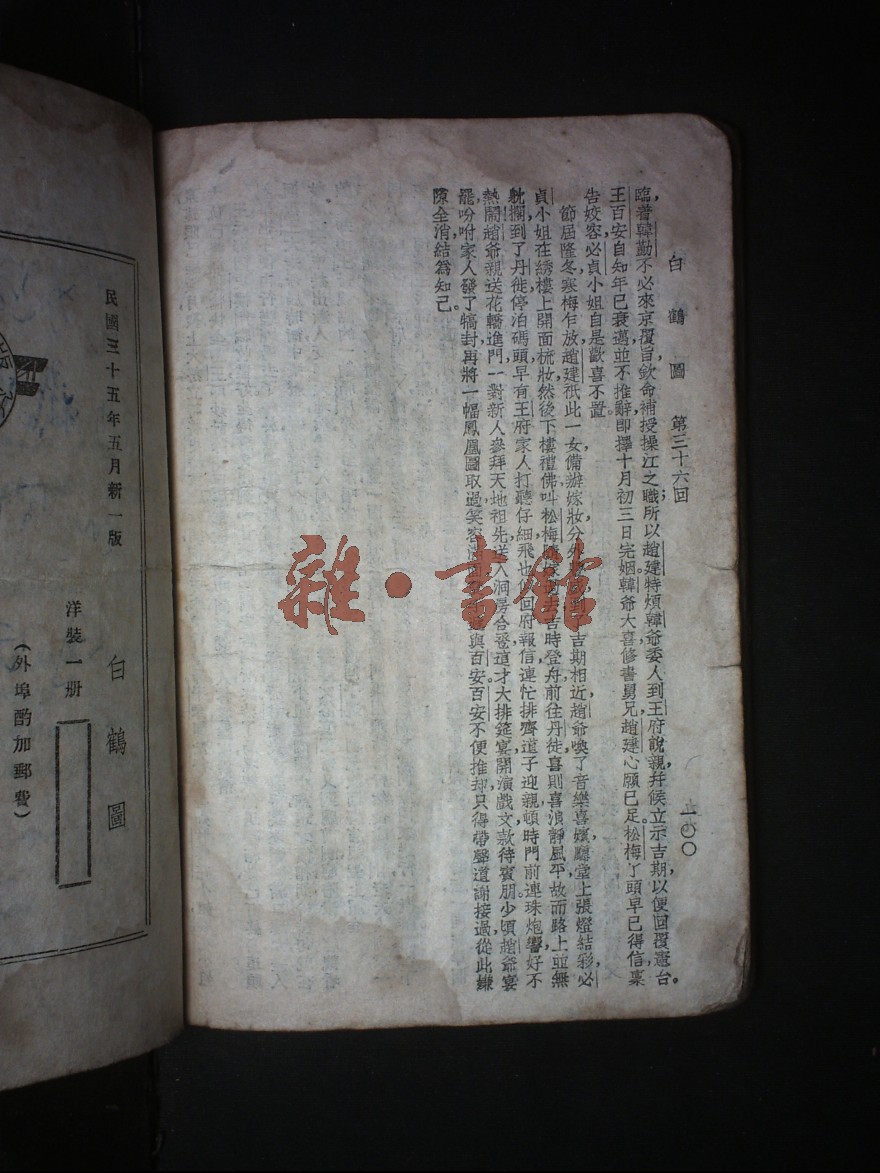 白鶴圖　第三十六回　一〇〇
臨着韓勤不必來京覆旨欽命補授操江之職所以趙建特煩韓爺委人到王府說親幷候立示吉期以便回覆憲台。
王百安自知年已衰邁並不推辭卽擇十月初三日完姻韓爺大喜修書舅兄趙建心願已足松梅丫頭早已得信稟
告姣容必貞小姐自是歡喜不置。
節屆隆冬寒梅乍放趙建祇此一女備辦嫁妝分外 到了吉期相近趙爺喚了音樂喜嬪廳堂上張燈結彩必
貞小姐在綉樓上開面梳妝然後下樓禮佛叫松梅 吉時登舟前往丹徒喜則喜浪靜風平故而路上並無
躭擱到了丹徒停泊碼頭早有王府家人打聽仔細飛也 回府報信連忙排齊道子迎親頓時門前連珠炮響好不
熱鬧趙爺親送花轎進門一對新人參拜天地祖先送入洞房合卺這才大排筵宴開演戲文款待賓朋少頃趙爺宴
罷吩咐家人發了犒封再將一幅鳳凰圖取過笑容 與百安百安不便推却只得帶聲道謝接過從此嫌
隙全消結爲知己。
民國三十五年五月新一版
白鶴圖
洋裝一册
（外埠酌加郵費）
雜·書館